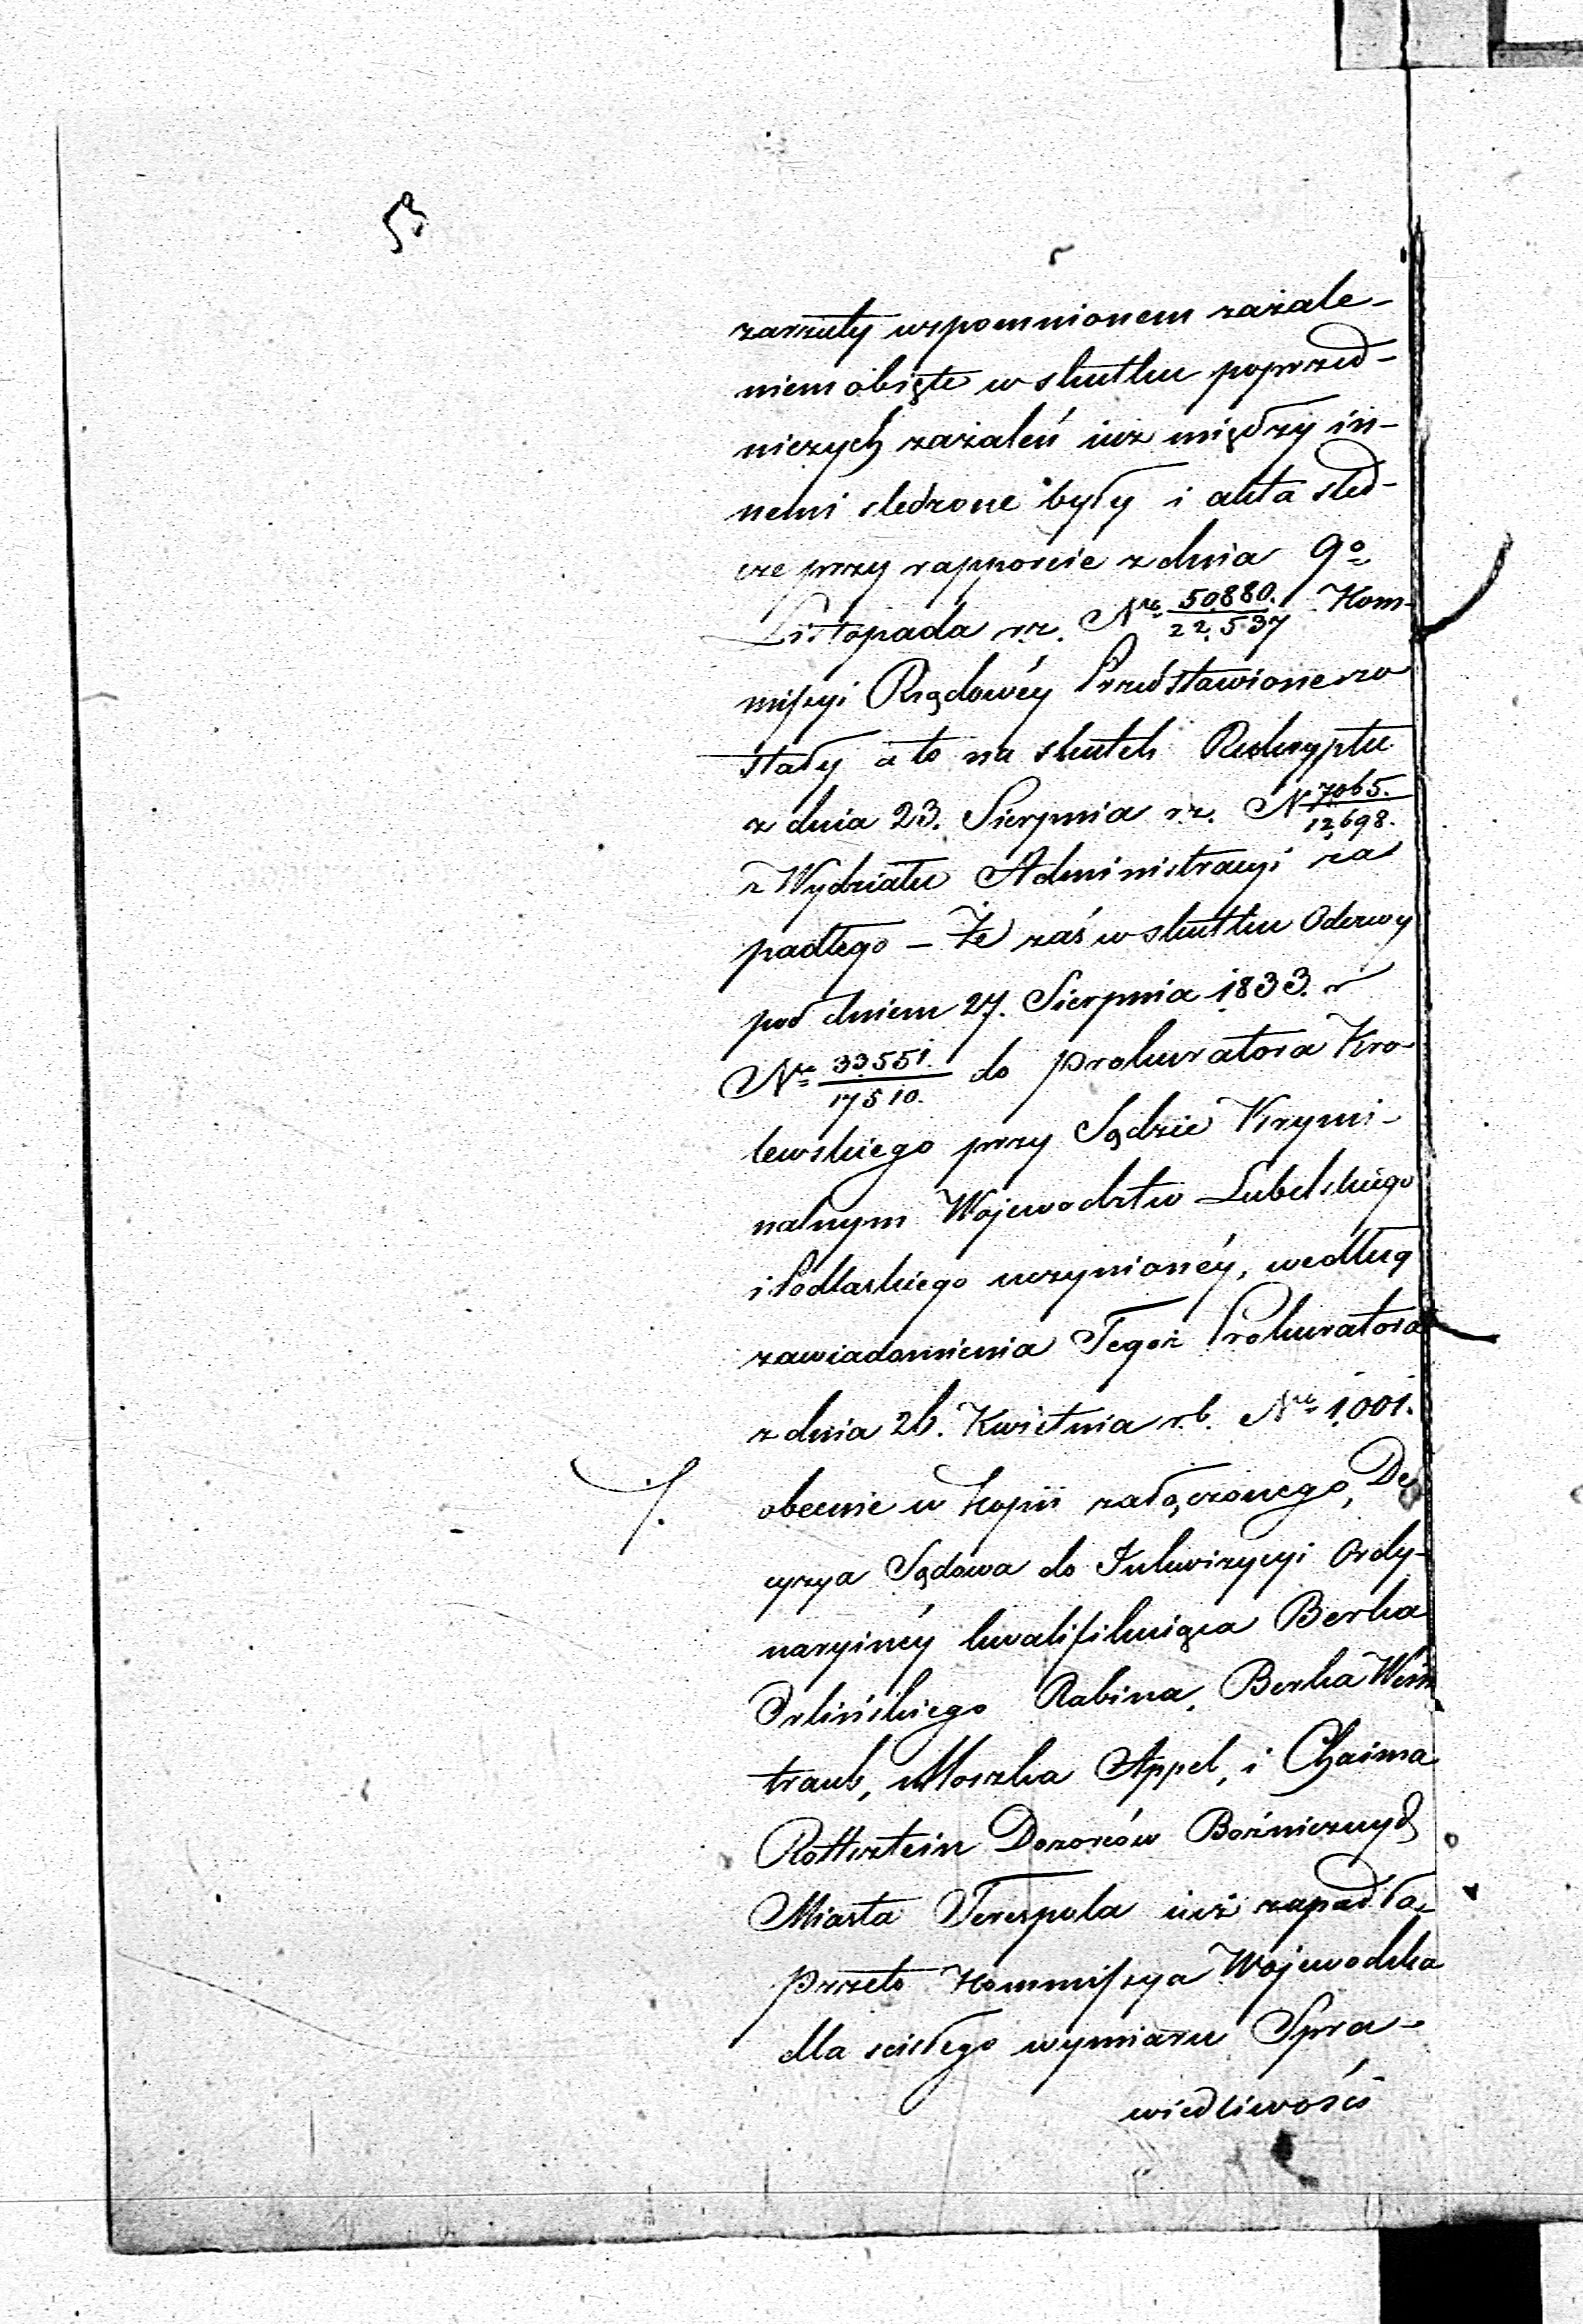 53
zarzuty wspomnionem zażale-
niem obięte w skutku poprzed-
niczych zażaleń iuz między in-
nemi sledzone były i akta sled-
cze przy rapporcie z dnia 9º
Listopada r.z. Nrο 50880./22,537 Kom-
missyi Rządowéy Przedstawione zo
stały a to na skutek Reskryptu
z dnia 23. Sierpnia r.z. N 7065./12,698.
z Wydziału Administracyi za
padłego – Że zaś w skutku Odezwy
pod dniem 27. Sierpnia 1833. r
Nro 33551./17510. do Prokuratora Kro-
lewskiego przy Sądzie Krymi-
nalnym Wojewodztw Lubelskiego
i Podlaskiego uczynionéy, według
zawiadomienia Tegoż Prokuratora
z dnia 26. Kwietnia r.b. Nro 1,001.
/. obecnie w kopii załączonego, De
cyzya Sądowa do Inkwizycyi Ordy-
naryinéy kwalifikuiąca Berka
Orlińskiego Rabina, Berka Wein
traub, Moszka Appel, i Chaima
Rottsztein Dozorców Bożniczych
Miasta Terespola iuż zapadła,
Przeto Kommissya Wojewodzka
dla scisłego wymiaru Spra-
wiedliwości